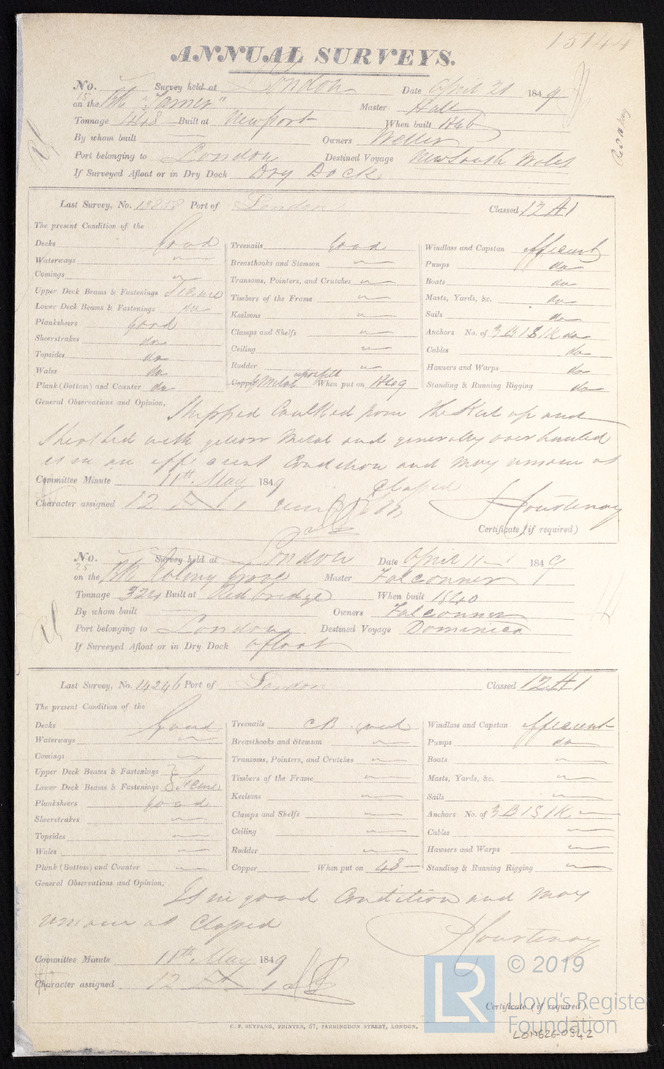 15144
ANNUAL SURVEYS.
No. Survey held at London Date April 21 1849
on the Master Hall
Tonnage 448 Built at Newport When built 1846
By whom built Owners
Port belonging to London Destined Voyage New South Wales
If Surveyed Afloat or in Dry Dock Dry Dock
Last Survey, No. Port of London Classed 12 A1
The present Condition of the
Decks Good Treenails Good Windlass and Capstan efficient
Waterways Breasthooks and Stemson Pumps do
Comings Transoms, Pointers, and Crutches Boats do
Upper Deck Beams & Fastenings Timbers of the Frame Masts, Yards, &c. do
Lower Deck Beams & Fastenings do Keelsons Sails do
Planksheers Good Clamps and Shelfs Anchors No. of 3 B 1 S 1 K do
Sheerstrakes do Ceiling Cables do
Topsides do Rudder Hawsers and Warps do
Wales do Copper When put on 1849 Standing & Running Rigging do
Plank (Bottom) and Counter do
General Observations and Opinion, Stripped Caulked from the Keel up and
Sheathed with yellow Metal and generally overhauled
is in an efficient Condition and may remain as
Classed
Committee Minute 11th May 1849
Character assigned 12 A 1 Courtenay
Certificate (if required)
No. Survey held at London Date April 11 1849
on the Master Falconner
Tonnage 324 Built at Redbridge When built 1840
By whom built Owners Falconner
Port belonging to London Destined Voyage Dominica
If Surveyed Afloat or in Dry Dock afloat
Last Survey, No. 14246 Port of London Classed 12 A1
The present Condition of the
Decks Good Treenails CB good Windlass and Capstan efficient
Waterways Breasthooks and Stemson Pumps do
Comings Transoms, Pointers, and Crutches Boats
Upper Deck Beams & Fastenings Timbers of the Frame Masts, Yards, &c.
Lower Deck Beams & Fastenings Keelsons Sails
Planksheers Good Clamps and Shelfs Anchors No. of 3 B 1 S 1 K
Sheerstrakes Ceiling Cables
Topsides Rudder Hawsers and Warps
Wales Copper When put on 48 Standing & Running Rigging
Plank (Bottom) and Counter
General Observations and Opinion, Is in good Condition and may
remain as Classed
Courtenay
Committee Minute 11th May 1849
Character assigned 12 A 1
Certificate (if required)
C. F. SEYFANG, PRINTER, 57, FARRINGDON STREET, LONDON.
LR © 2019
Lloyd's Register
Foundation
LON626-0342